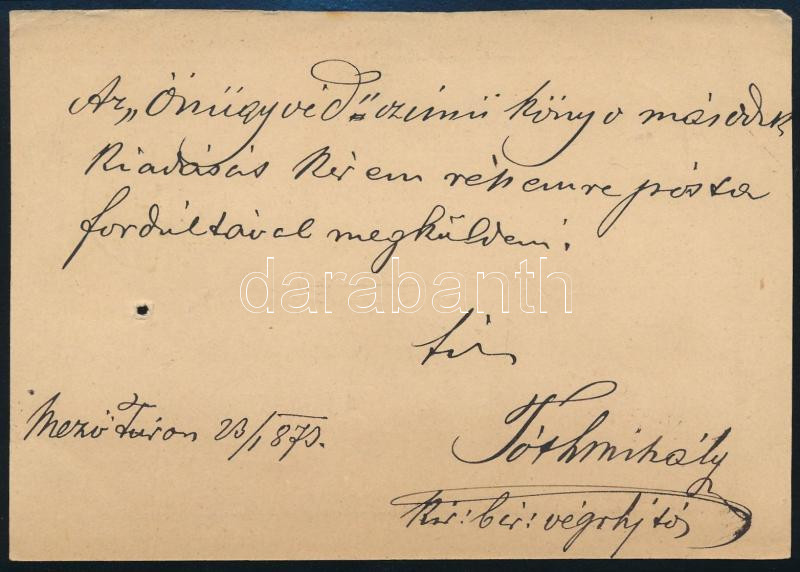 Az „Önügyvéd" czimü könyv második
Kiadását kérem részemre posta
fordúltával megküldeni.
darabanth
Mező Túron 23/1 873.
Tóth mihály
Kir: bir: végrehjtó